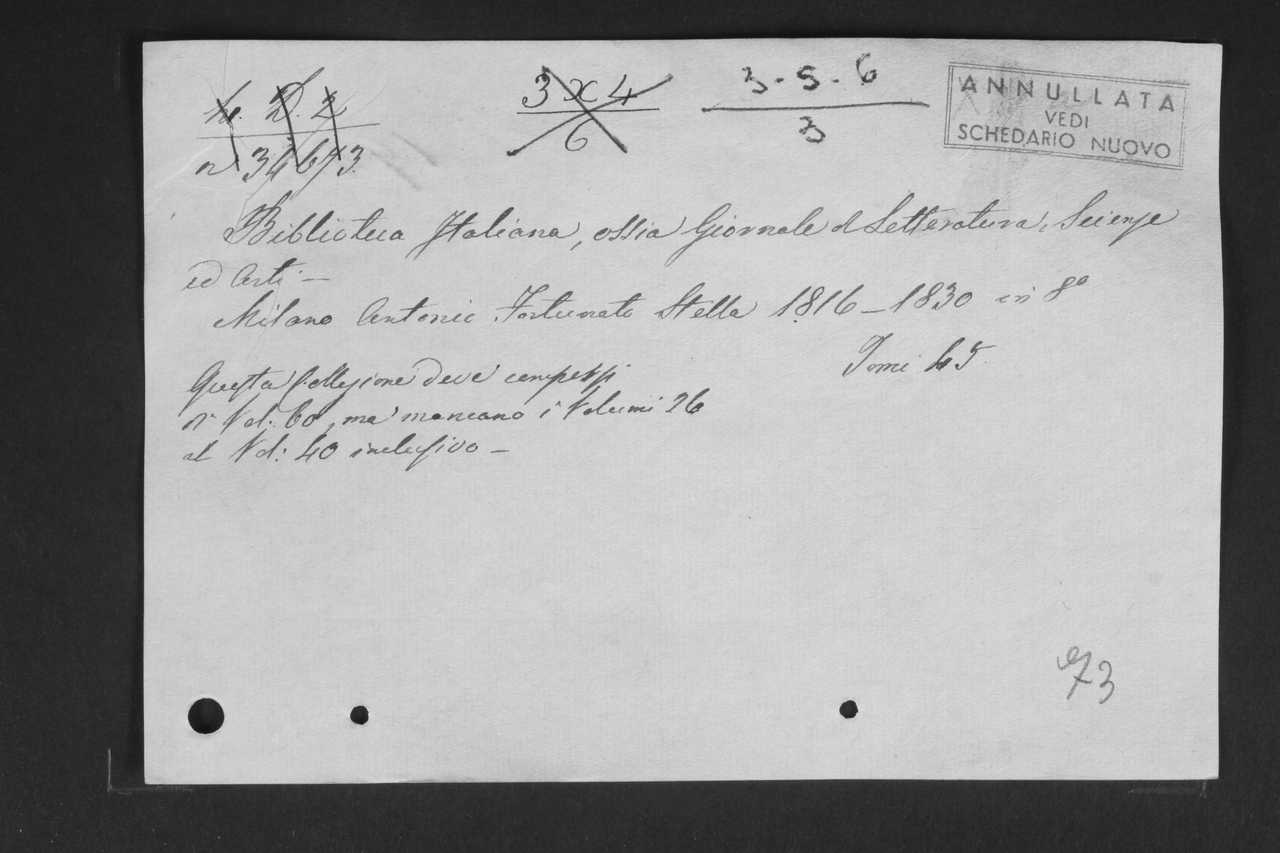 3 x 4
6
3 - 5 - 6
3
ANNULLATA
VEDI
SCHEDARIO NUOVO
Biblioteca Italiana, ossia Giornale d Letteratura, Scienze
ed Arti —
Milano Antonio Fortunato Stella 1816 – 1830 in 8º
Tomi 45.
Questa Collezione deve
Vol: 60, ma mancano i Volumi 26
al Vol: 40 inclusivo –
73